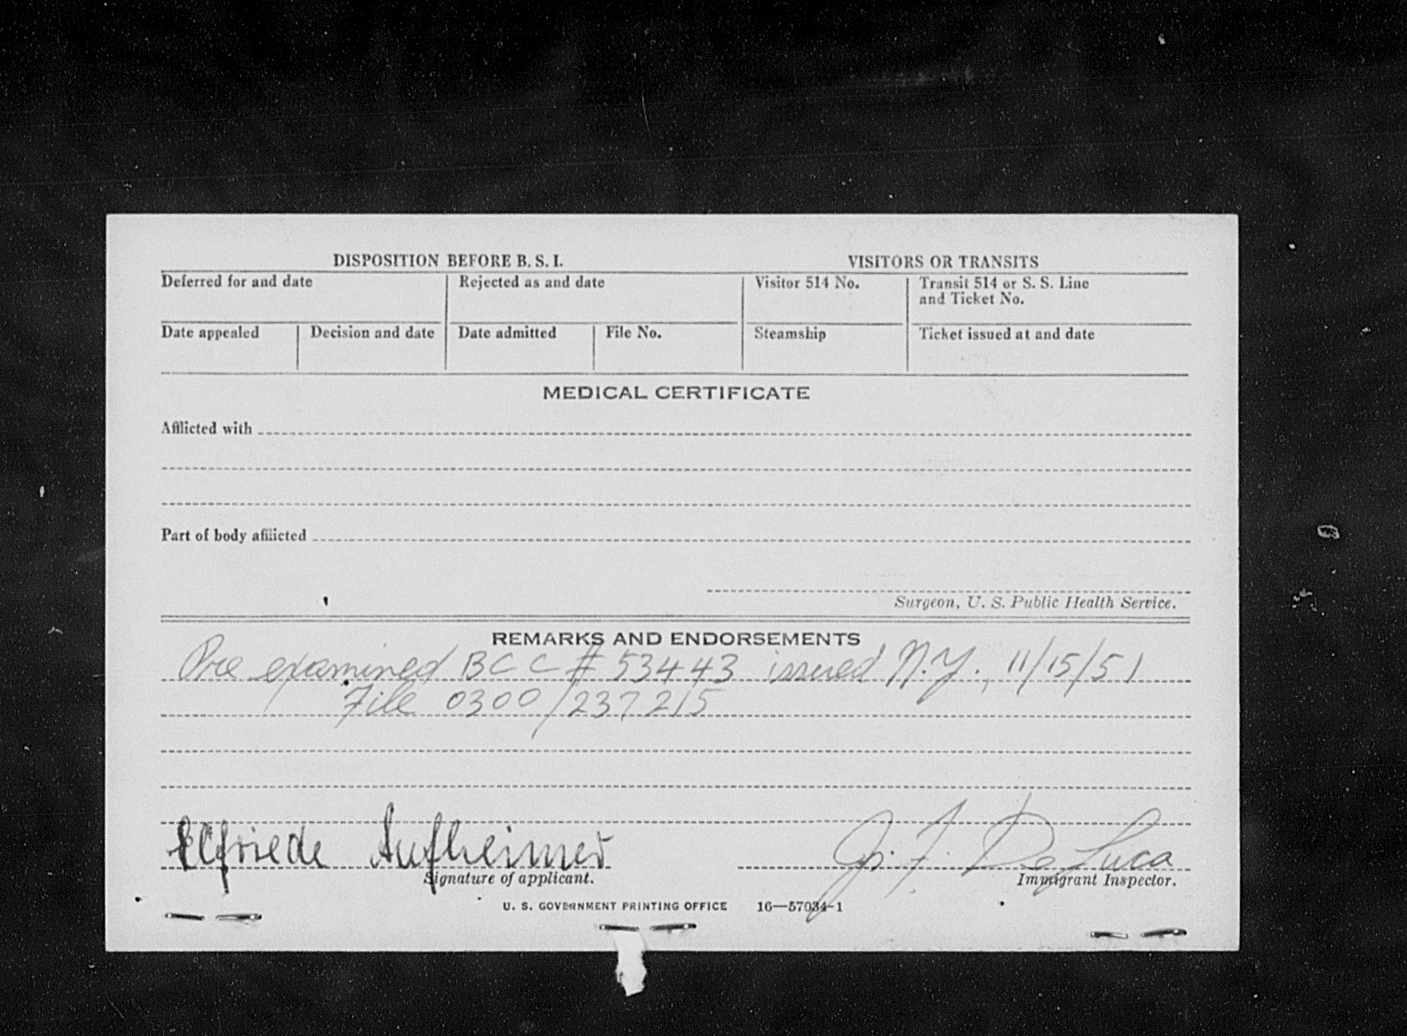 DISPOSITION BEFORE B. S. I.
VISITORS OR TRANSITS
Deferred for and date
Rejected as and date
Visitor 514 No.
Transit 514 or S. S. Line
and Ticket No.
Date appealed
Decision and date
Date admitted
File No.
Steamship
Ticket issued at and date
MEDICAL CERTIFICATE
Afflicted with
Part of body afflicted
Surgeon, U. S. Public Health Service.
REMARKS AND ENDORSEMENTS
Pre examined BCC # 53443 issued N.Y., 11/15/51
File 0300/237215
Elfriede Aufheimer
J. F. De Luca
Signature of applicant.
Immigrant Inspector.
U. S. GOVERNMENT PRINTING OFFICE 16—57034-1